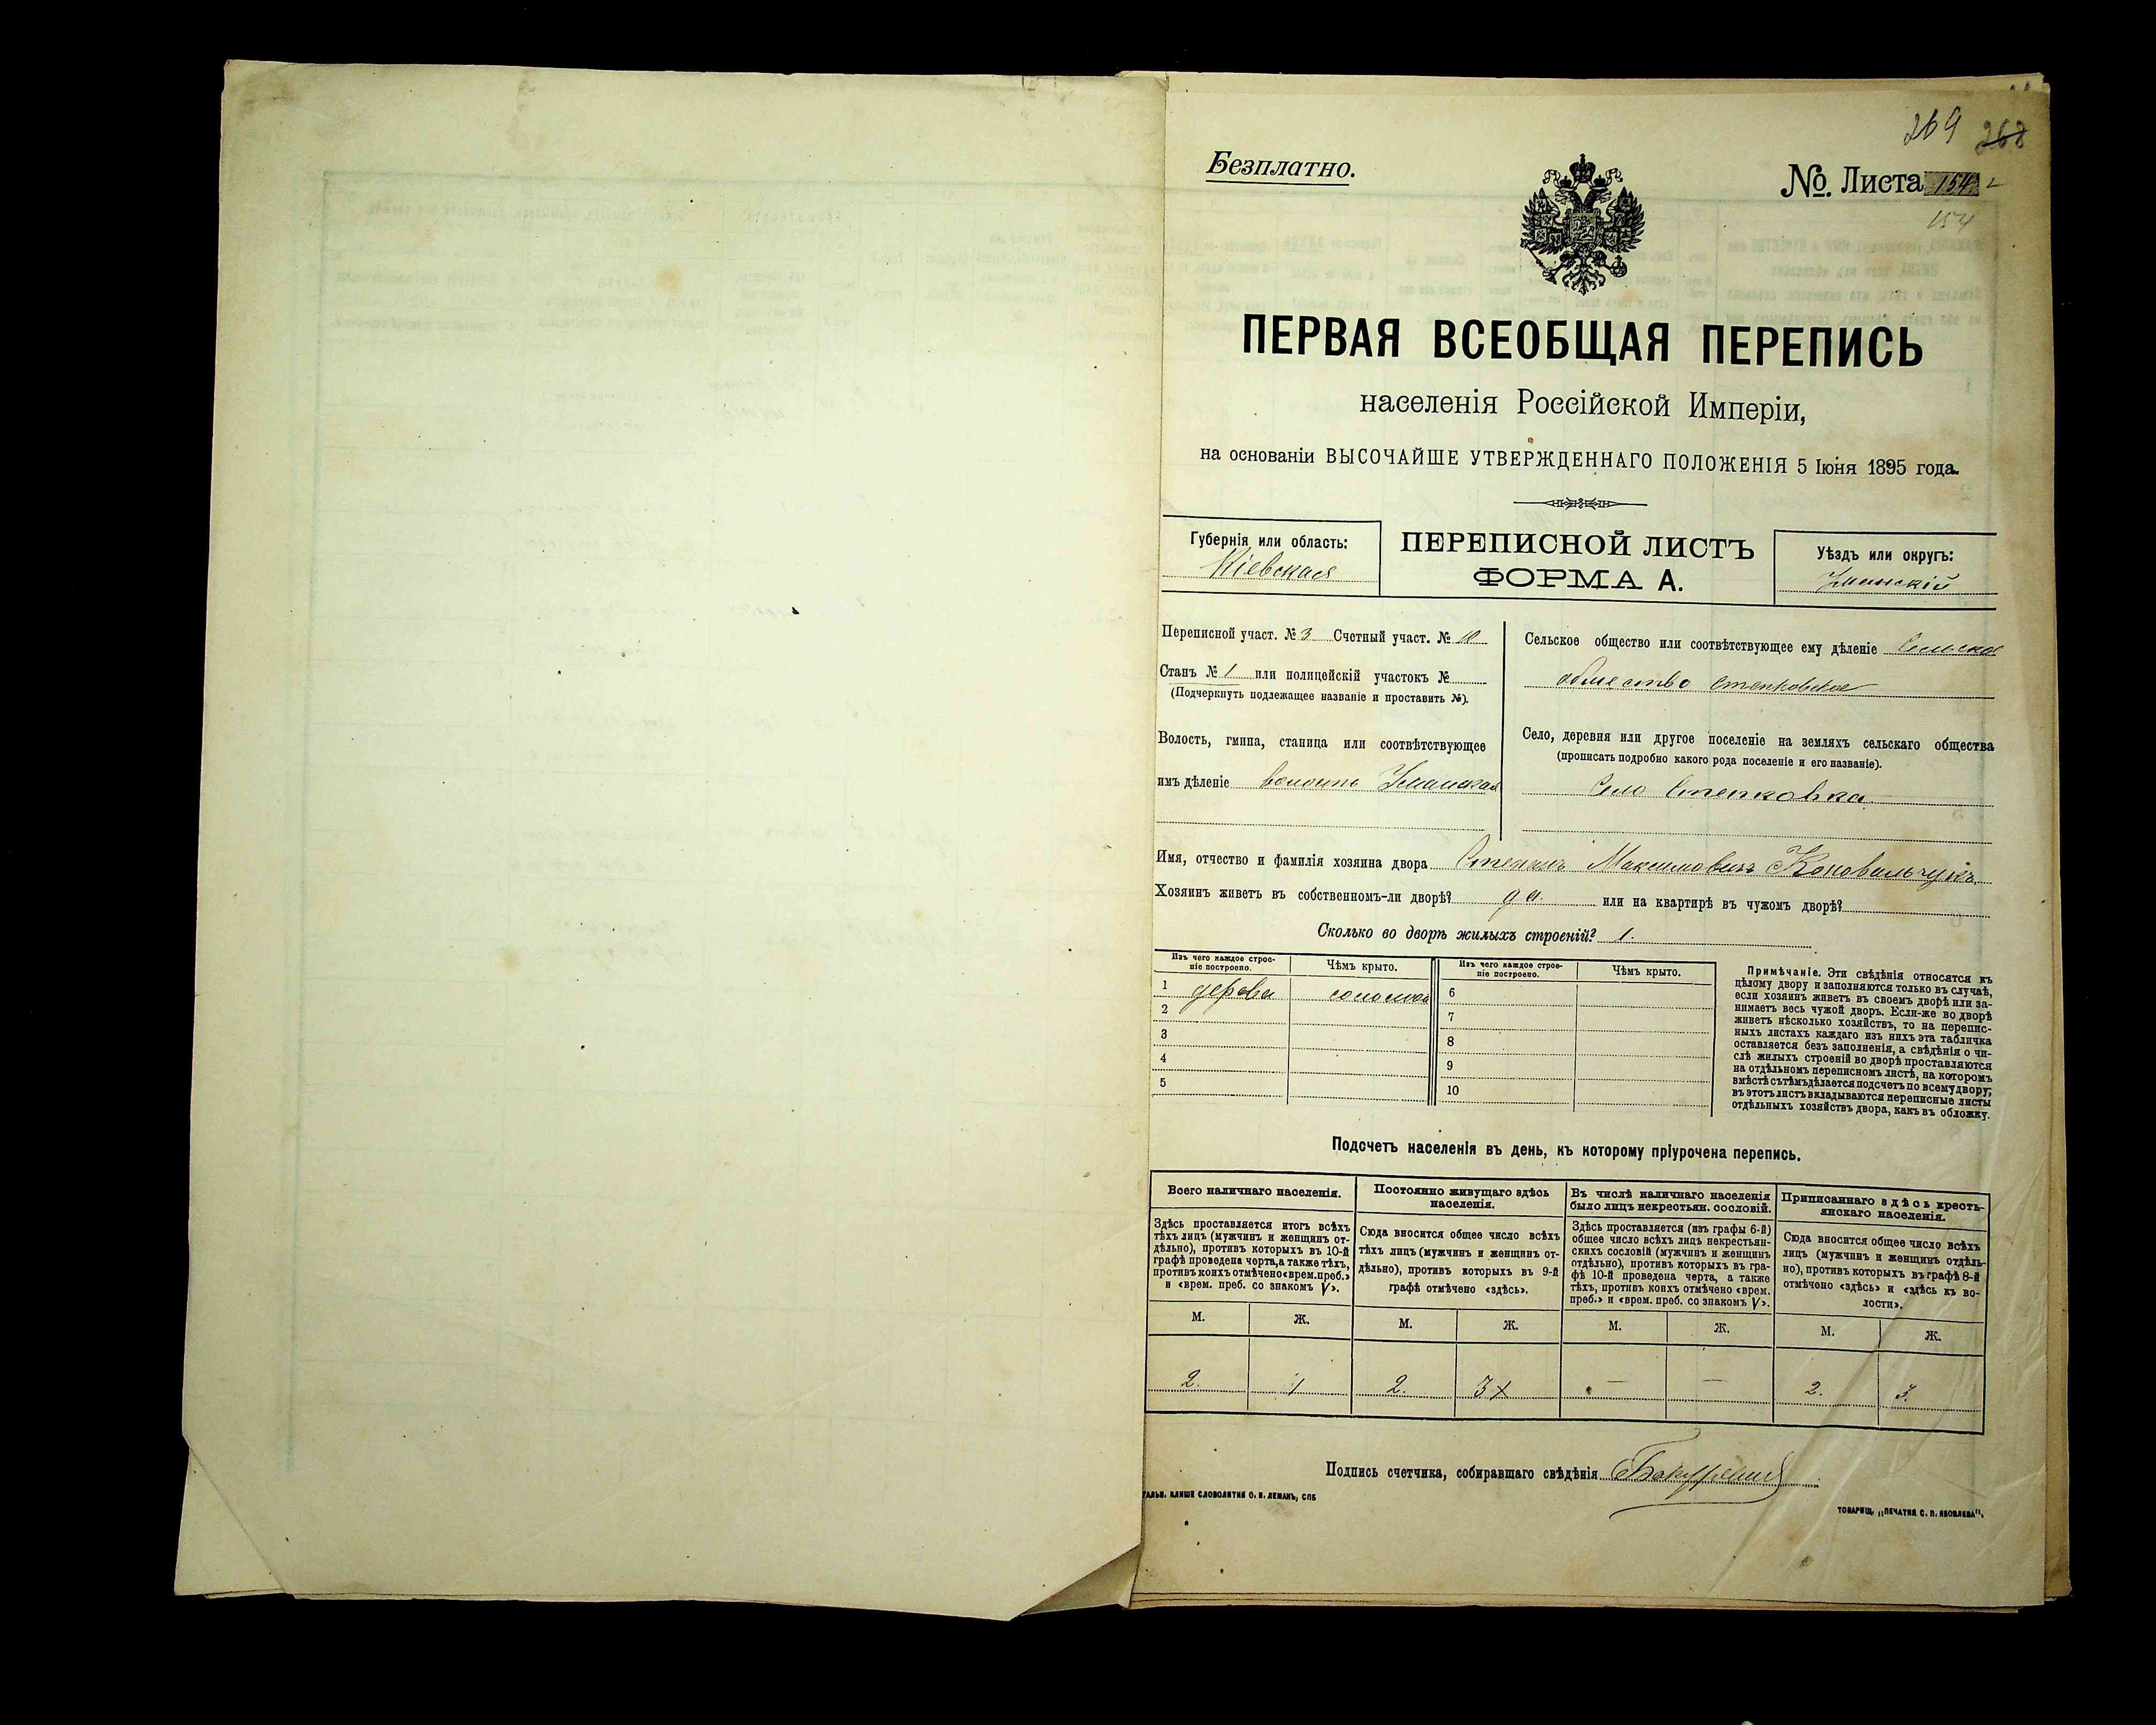 269 268
Безплатно.
№. Листа 154
154
ПЕРВАЯ ВСЕОБЩАЯ ПЕРЕПИСЬ
населенія Россійской Имперіи,
на основаніи ВЫСОЧАЙШЕ УТВЕРЖДЕННАГО ПОЛОЖЕНІЯ 5 Іюня 1895 года.
Губернія или область:
Кіевская
ПЕРЕПИСНОЙ ЛИСТЪ
ФОРМА А.
Уѣздъ или округъ:
Уманскій
Переписной участ. № 3 Счетный участ. № 10
Станъ № 1 или полицейскій участокъ №
(Подчеркнуть подлежащее названіе и проставить №).
Волость, гмина, станица или соотвѣтствующее
имъ дѣленіе волость Уманская
Сельское общество или соотвѣтствующее ему дѣленіе Сельское
общество Степковское
Село, деревня или другое поселеніе на земляхъ сельскаго общества
(прописать подробно какого рода поселеніе и его названіе).
Село Степковка.
Имя, отчество и фамилія хозяина двора Степанъ Максимовичъ Коновальчукъ.
Хозяинъ живетъ въ собственномъ-ли дворѣ? да. или на квартирѣ въ чужомъ дворѣ?
Сколько во дворѣ жилыхъ строеній? 1.
Изъ чего каждое строе-
ніе построено.
Чѣмъ крыто.
Изъ чего каждое строе-
ніе построено.
Чѣмъ крыто.
1 дерева соломой 6
2 7
3 8
4 9
5 10
Примѣчаніе. Эти свѣдѣнія относятся къ
цѣлому двору и заполняются только въ случаѣ,
если хозяинъ живетъ въ своемъ дворѣ или за-
нимаетъ весь чужой дворъ. Если-же во дворѣ
живетъ нѣсколько хозяйствъ, то на перепис-
ныхъ листахъ каждаго изъ нихъ эта табличка
оставляется безъ заполненія, а свѣдѣнія о чи-
слѣ жилыхъ строеній во дворѣ проставляются
на отдѣльномъ переписномъ листѣ, на которомъ
вмѣстѣ съ тѣмъ дѣлается подсчетъ по всему двору;
въ этотъ листъ вкладываются переписные листы
отдѣльныхъ хозяйствъ двора, какъ въ обложку.
Подсчетъ населенія въ день, къ которому пріурочена перепись.
Всего наличнаго населенія.
Здѣсь проставляется итогъ всѣхъ
тѣхъ лицъ (мужчинъ и женщинъ от-
дѣльно), противъ которыхъ въ 10-й
графѣ проведена черта, а также тѣхъ,
противъ коихъ отмѣчено «врем. преб.»
и «врем. преб. со знакомъ V».
Постоянно живущаго здѣсь
населенія.
Сюда вносится общее число всѣхъ
тѣхъ лицъ (мужчинъ и женщинъ от-
дѣльно), противъ которыхъ въ 9-й
графѣ отмѣчено «здѣсь».
Въ числѣ наличнаго населенія
было лицъ некрестьян. сословій.
Здѣсь проставляется (изъ графы 6-й)
общее число всѣхъ лицъ некрестьян-
скихъ сословій (мужчинъ и женщинъ
отдѣльно), противъ которыхъ въ гра-
фѣ 10-й проведена черта, а также
тѣхъ, противъ коихъ отмѣчено «врем.
преб.» и «врем. преб. со знакомъ V».
Приписаннаго здѣсь кресть-
янскаго населенія.
Сюда вносится общее число всѣхъ
лицъ (мужчинъ и женщинъ отдѣль-
но), противъ которыхъ въ графѣ 8-й
отмѣчено «здѣсь» и «здѣсь къ во-
лости».
М. Ж. М. Ж. М. Ж. М. Ж.
2. 1 2. 3 — — 2. 3.
Подпись счетчика, собиравшаго свѣдѣнія
ТАЛЬИ. КЛИШЕ СЛОВОЛИТНИ О. И. ЛЕМАНЪ, СПБ
ТОВАРИЩ. „ПЕЧАТНЯ С. П. ЯКОВЛЕВА“.